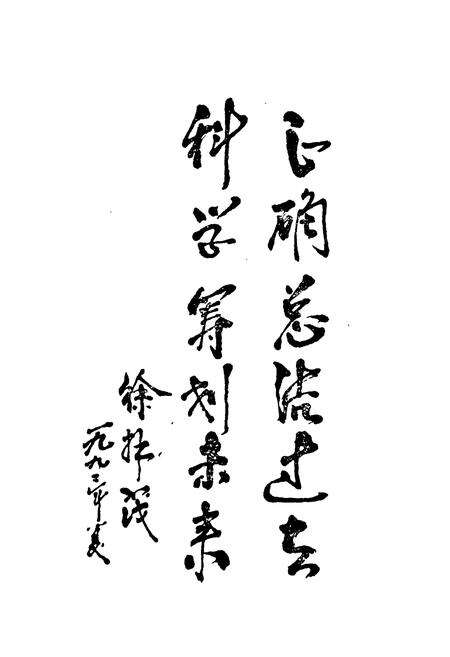 正确总结过去
科学筹划未来
徐
一九九二年